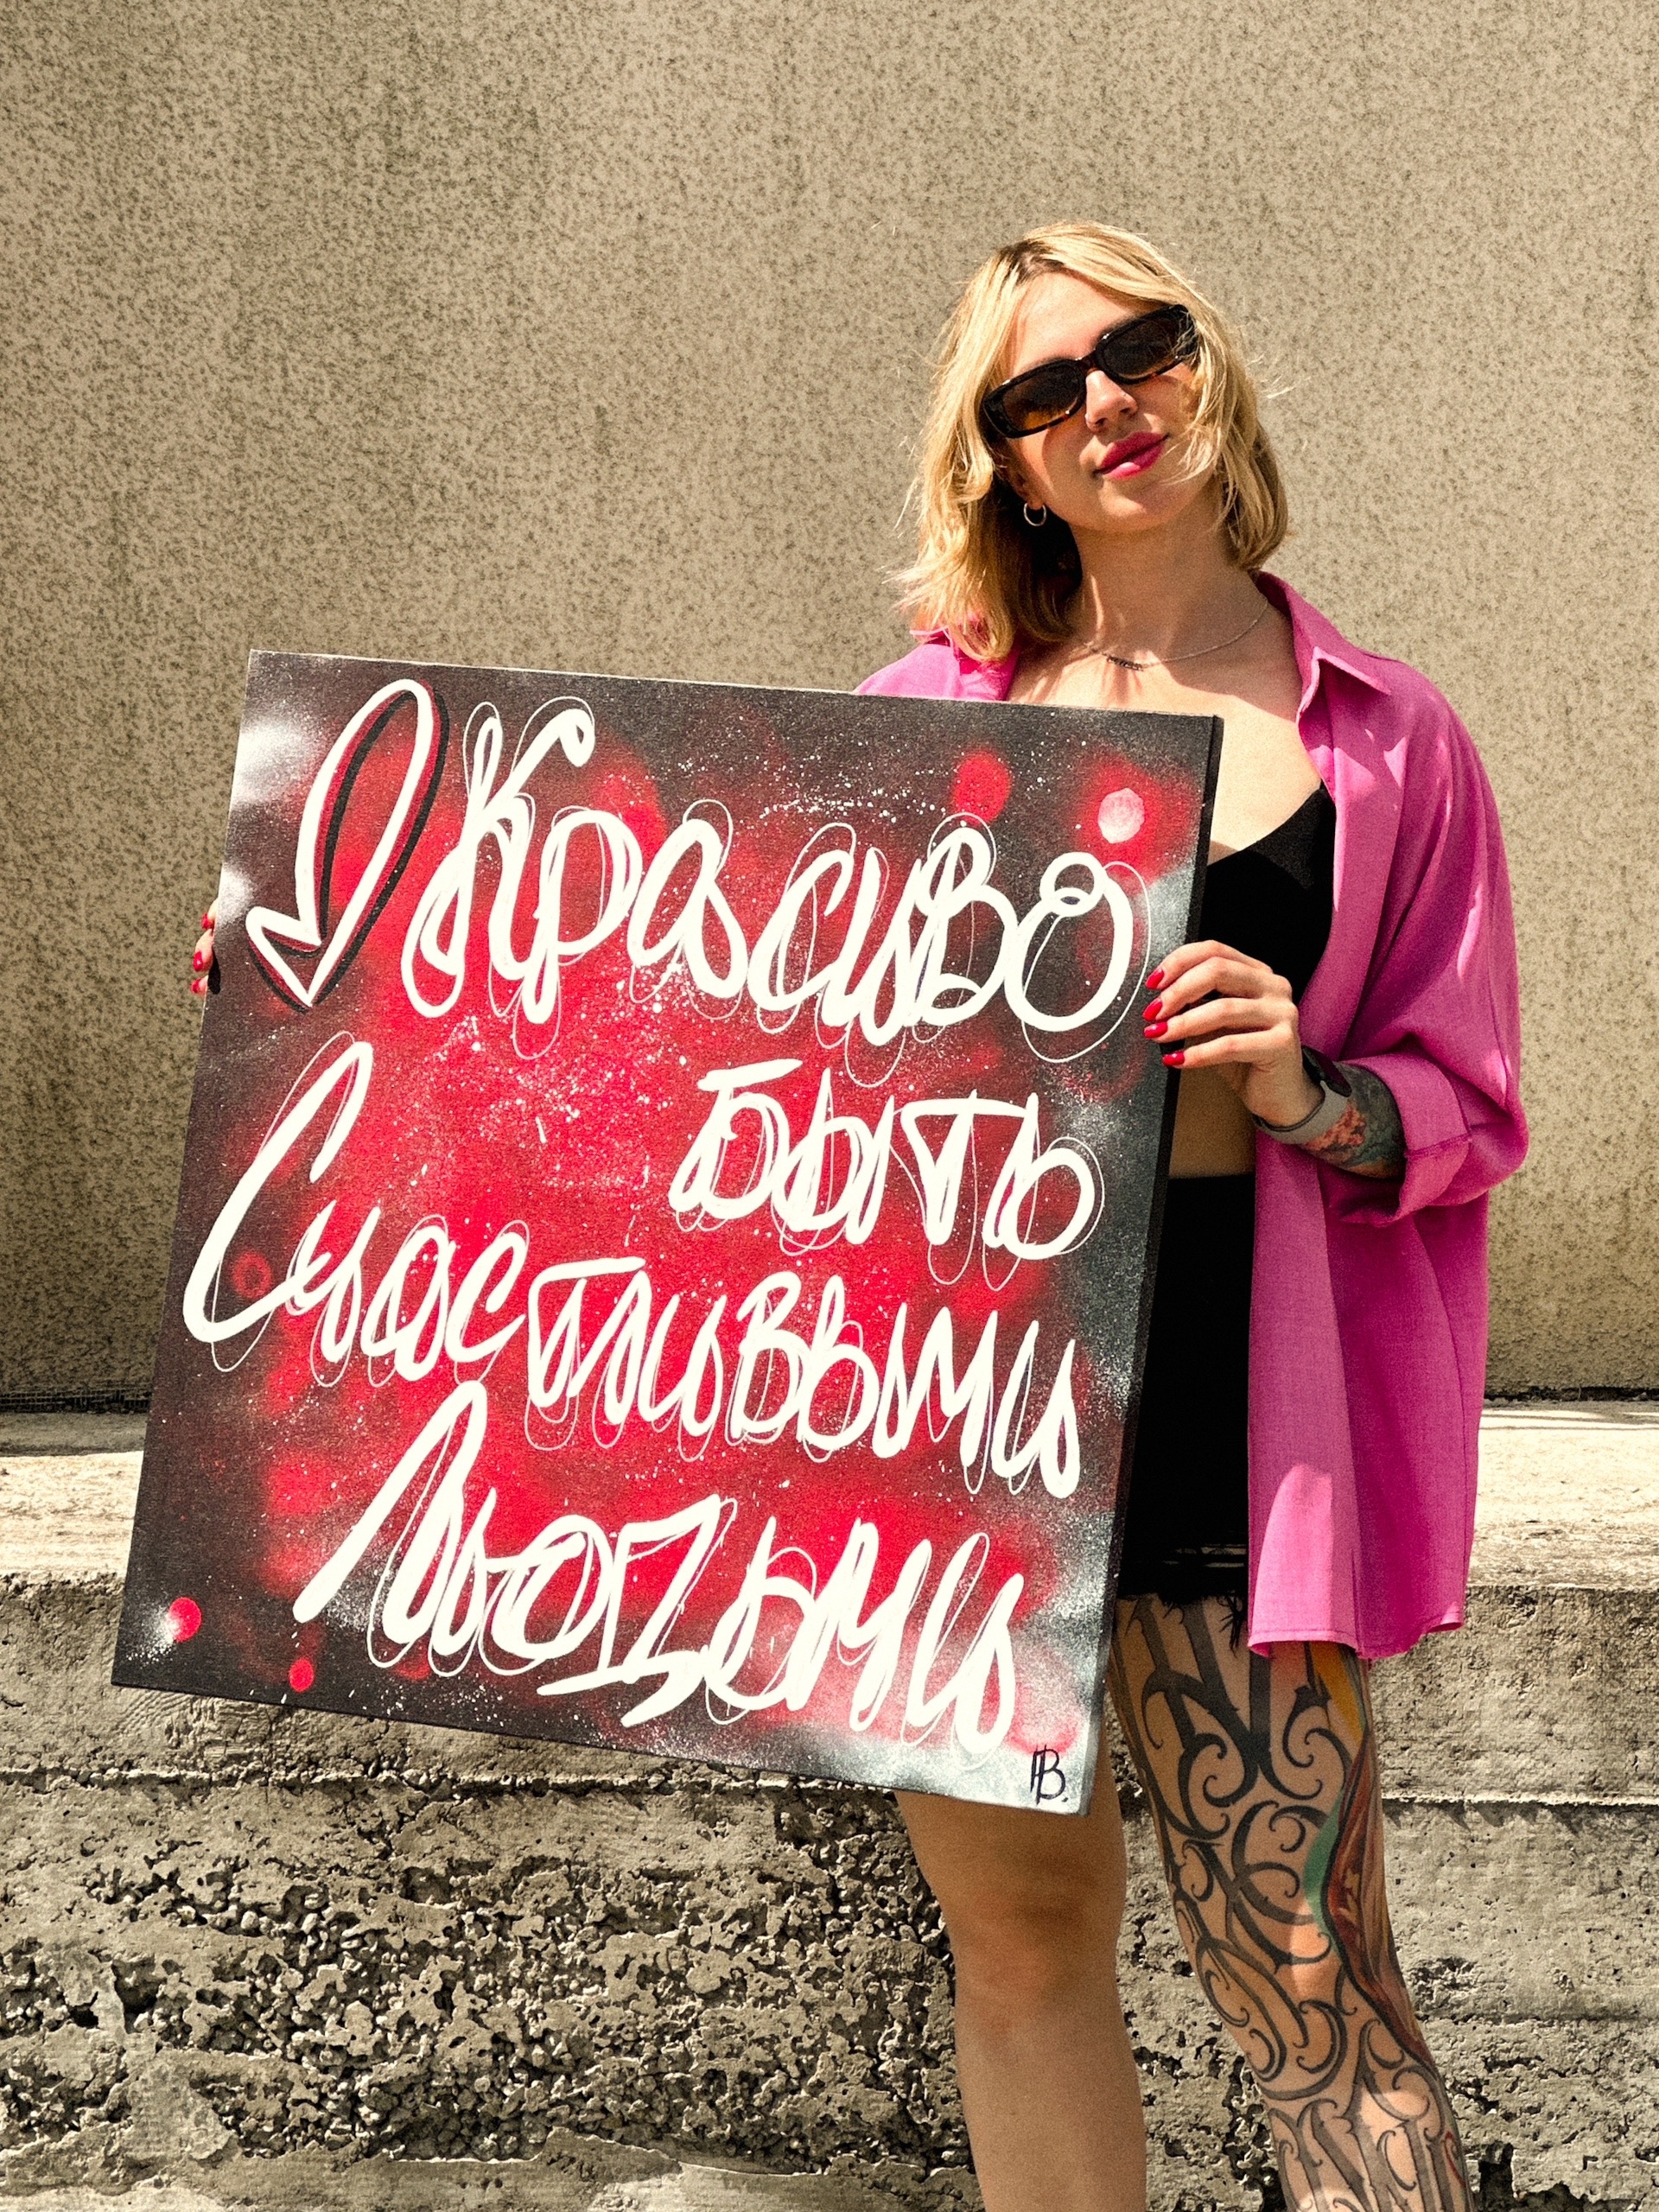 Красиво
быть
Счастливыми
Людьми
НВ.